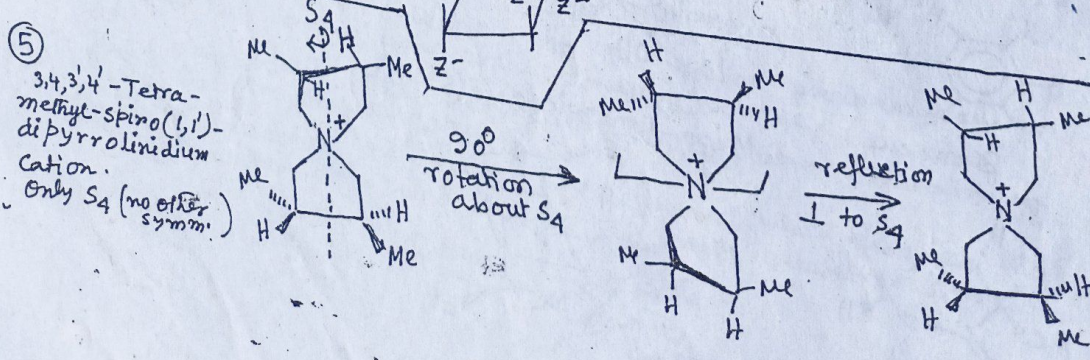 5
3,4,3',4'-Tetra-
methyl-spiro(1,1')-
dipyrrolinidium
Cation.
Only S4 (no other
symm.)
S4
Me H
Me
H
N +
Me
H
H
Me
Z-
Z-
90°
rotation
about S4
H
Me
Me
H
+
N
Me
Me
H
H
reflection
⊥ to S4
Me H
Me
H
+
N
Me
H
H
Me